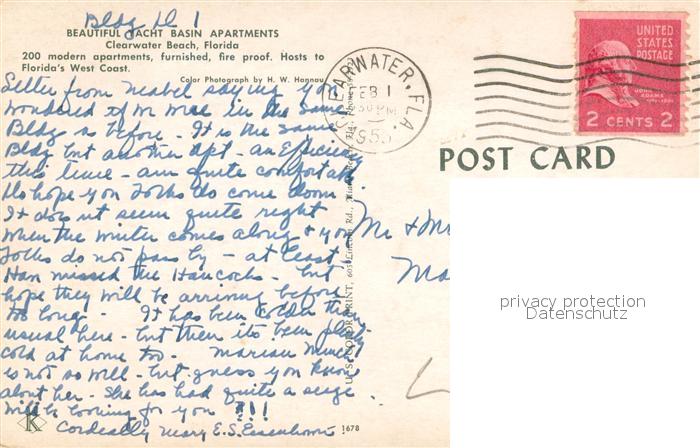 Bldg D 1
BEAUTIFUL YACHT BASIN APARTMENTS
Clearwater Beach, Florida
200 modern apartments, furnished, fire proof. Hosts to
Florida's West Coast.
Color Photograph by H. W. Hannau
Letter from Mabel saying you
wondered if we were in the same
Bldg as before - It is the same
Bldg but another Apt - an Efficiency
this time - am quite comfortable
Do hope you Folks do come down.
It does nt seem quite right
when the winter comes along & you
Folks do not pass by - at least
Have missed the Hancocks - but
hope they will be arriving before
too long - It has been colder than
usual here - but then its been plenty
cold at home too - Marian
is not so well - but guess you know
about her - she has had quite a seige.
Will be looking for you !!!
Cordially Mary E.S. Eisenhower
K
1678
CLEARWATER, FLA.
FEB 1
30 PM
1955
UNITED
STATES
POSTAGE
JOHN
ADAMS
2 CENTS 2
POST CARD
Mr & M
Ma
privacy protection
Datenschutz